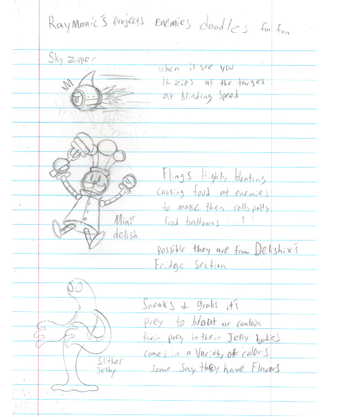 RayMonic's projects enemies doodles for fun
Sky zipper
when it see you
it zips at the target
at blinding speed
Flings Highly bloating
causing food at enemies
to make them rolly polly
food balloons !!
Mini
delish
possible they are from Delishix's
Fridge section
Sneaks & grabs it's
prey to bloat or contain
their prey in their Jelly bodies
comes in a variety of colors
some say they have Flavors
Slither
Jelly